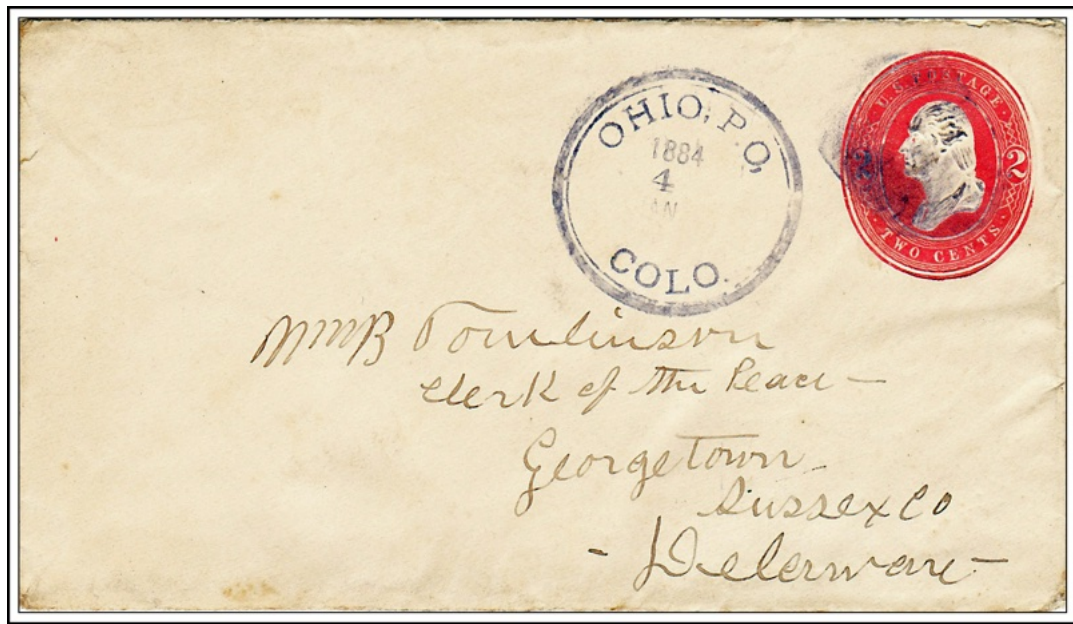 OHIO, P.O.
1884
4
AN
COLO.
U.S. POSTAGE
2 2
TWO CENTS
WmB Tomlinson
Clerk of the Peace —
Georgetown
Sussex Co
- Delerware -